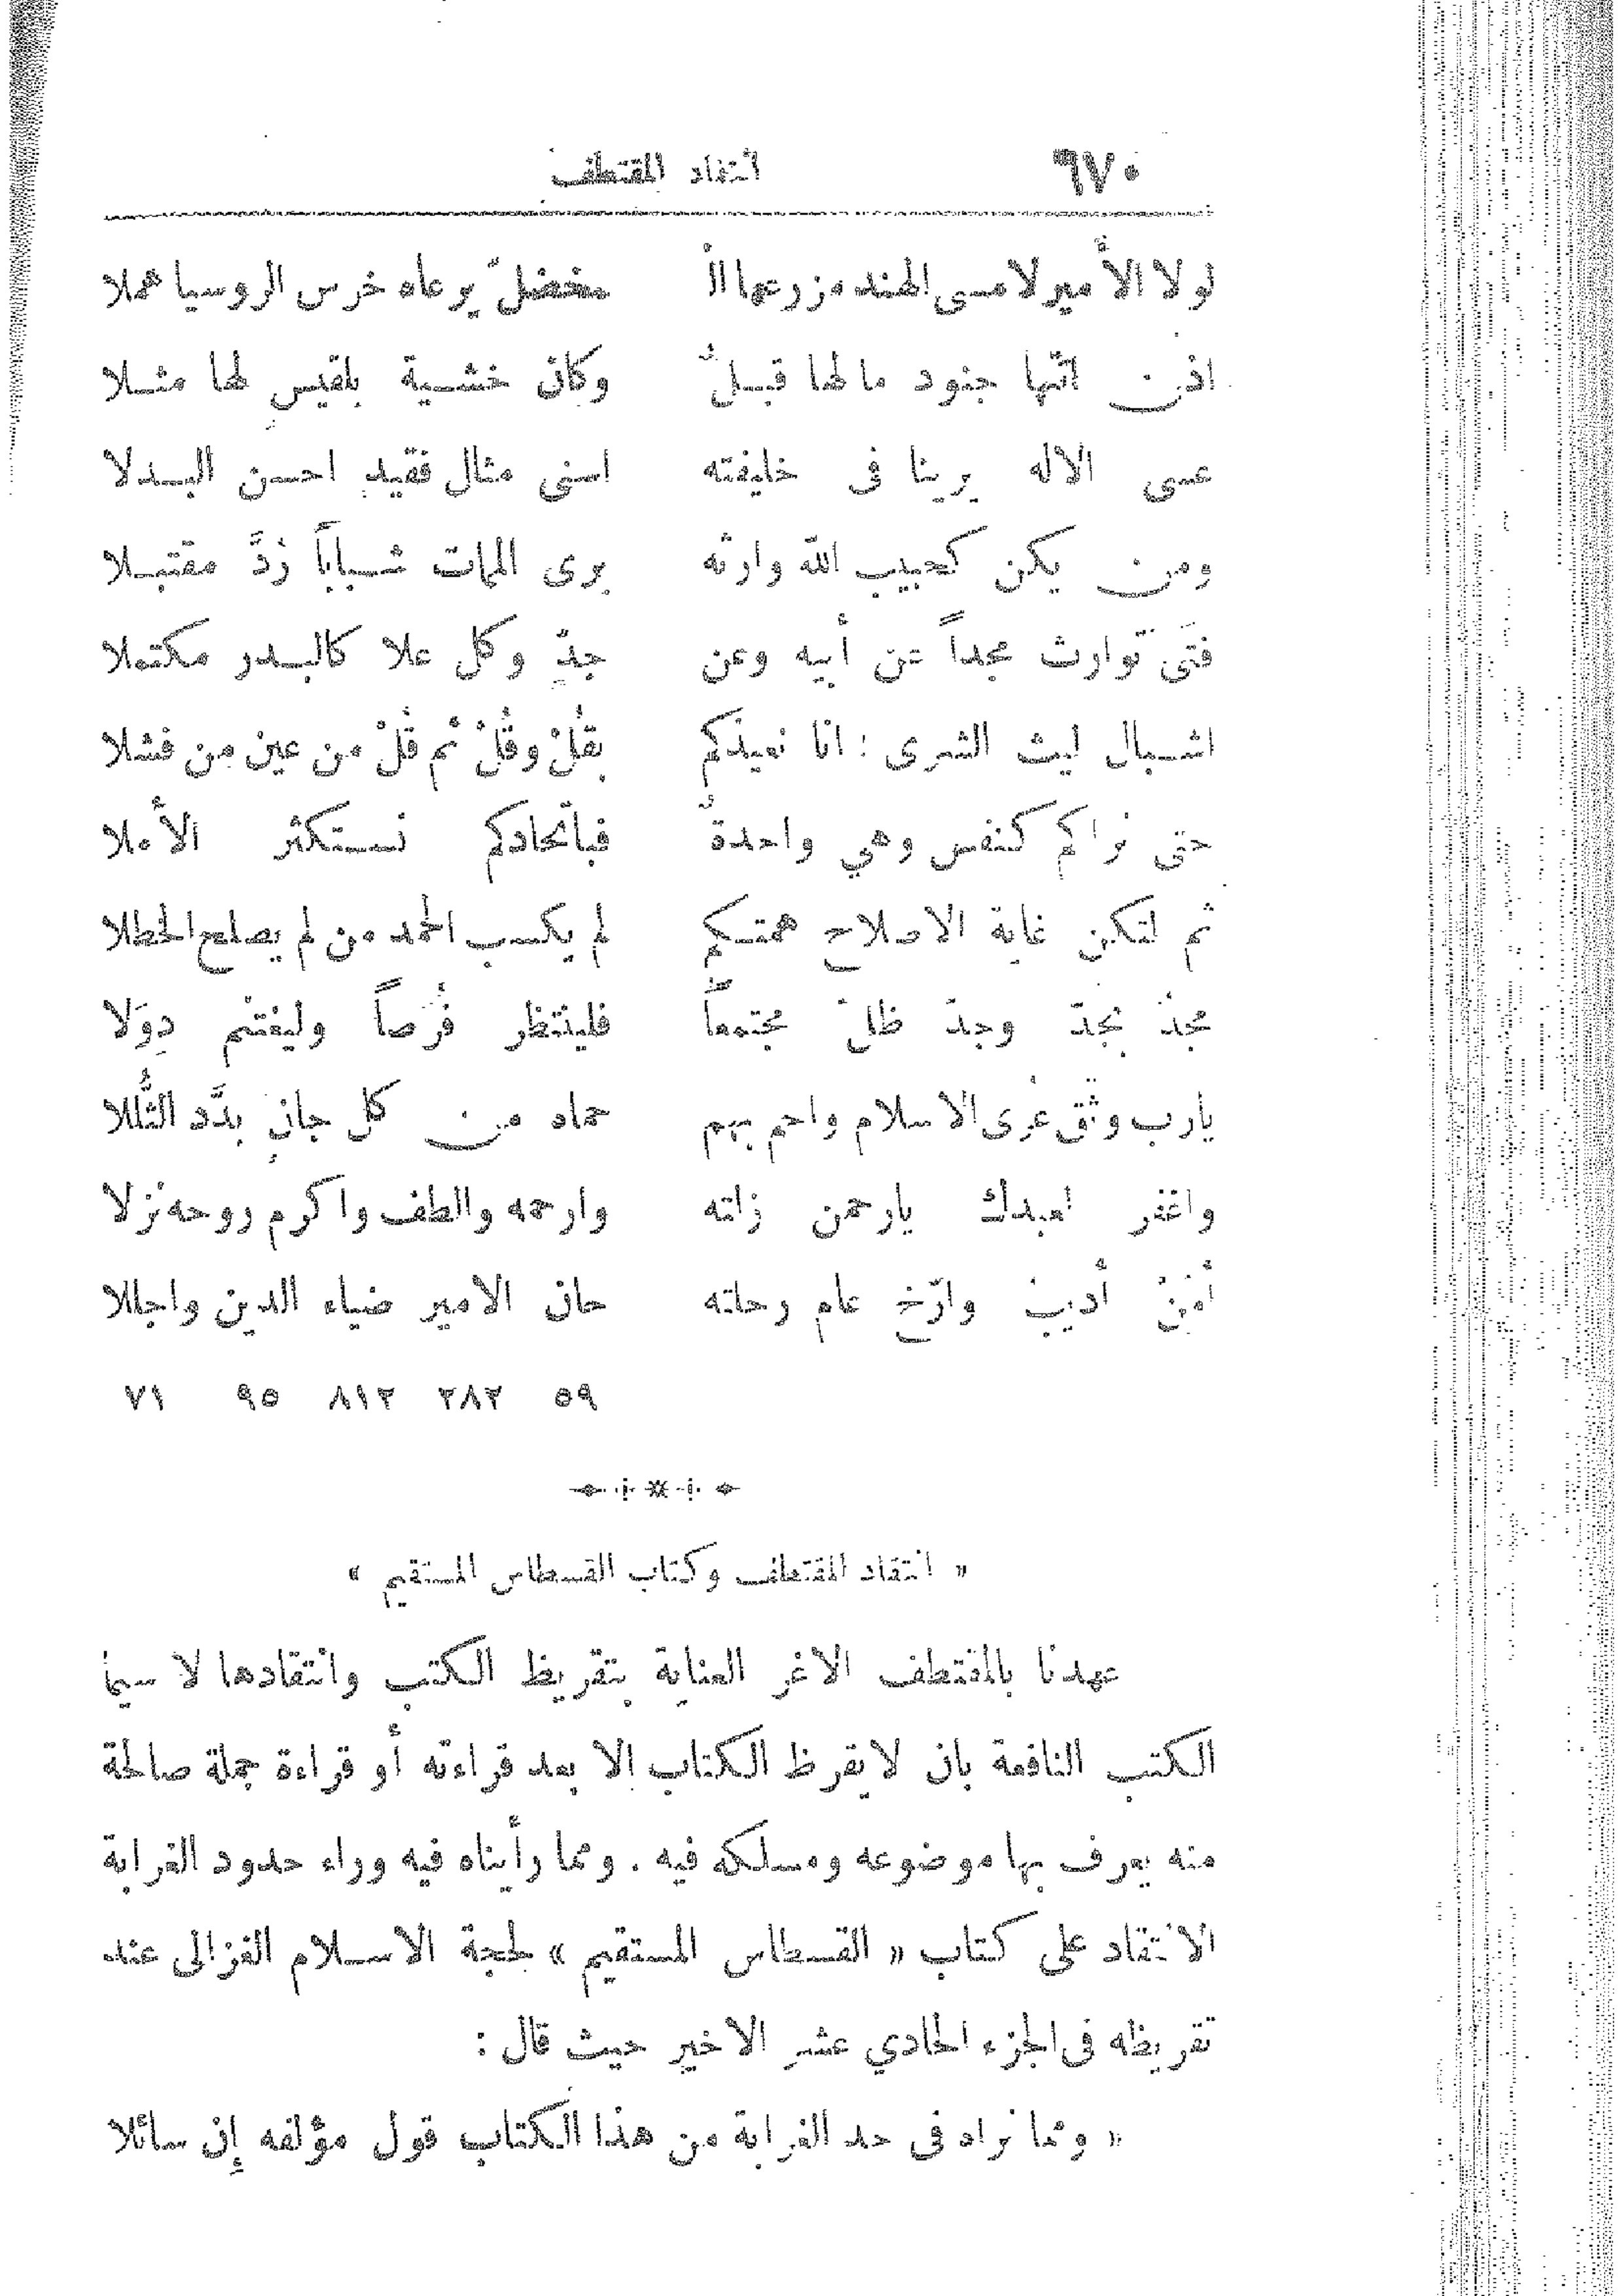 ٦٧٠ انتقاد المقتطف
لولا الأمير لامسى الهند مزرعها الْ مخضلّ يرعاه خرس الروسيا هملا
اذن اتتها جنود مالها قبلٌ وكان خشية بلقيس لها مثلا
عسى الاله يرينا فى خليفته اسنى مثال فقيدٍ احسن البدلا
ومن يكن كحبيب الله وارثه يرى الممات شباباً رُدَّ مقتبلا
فتىً توارث مجداً عن أبيه وعن جدٍّ وكل علا كالبدر مكتملا
اشبال ليث الشرى : انا نعيذكم بقُلْ وقُلْ ثم قُلْ من عين من فشلا
حتى نراكم كنفس وهي واحدةٌ فبأتحادكم نستكثر الأملا
ثم لتكن غاية الاصلاح همتكم لم يكسب الحمد من لم يصلح الخللا
مجدّ بجدّ وجدّ ظلّ مجتمعاً فلينتظر فُرَصاً وليغتنم دِوَلا
يارب وثق عُرى الاسلام واحم بهم حماه من كل جانٍ بدَّد الثُّللا
واغفر لعبدك يارحمن زلته وارحمه والطف واكرم روحه نزلا
أمنن أديبُ وارّخ عام رحلته حان الامير ضياء الدين واجللا
٥٩ ٢٨٢ ٨١٢ ٩٥ ٧١
« انتقاد المقتطف وكتاب القسطاس المستقيم »
عهدنا بالمقتطف الاغر العناية بتقريظ الكتب وانتقادها لا سيما
الكتب النافعة بان لا يقرظ الكتاب الا بعد قراءته أو قراءة جملة صالحة
منه يعرف بها موضوعه ومسلكه فيه . ومما رأيناه فيه وراء حدود الغرابة
الانتقاد على كتاب « القسطاس المستقيم » لحجة الاسلام الغزالى عند
تقريظه فى الجزء الحادي عشر الاخير حيث قال :
« ومما نراه فى حد الغرابة من هذا الكتاب قول مؤلفه إن سائلا